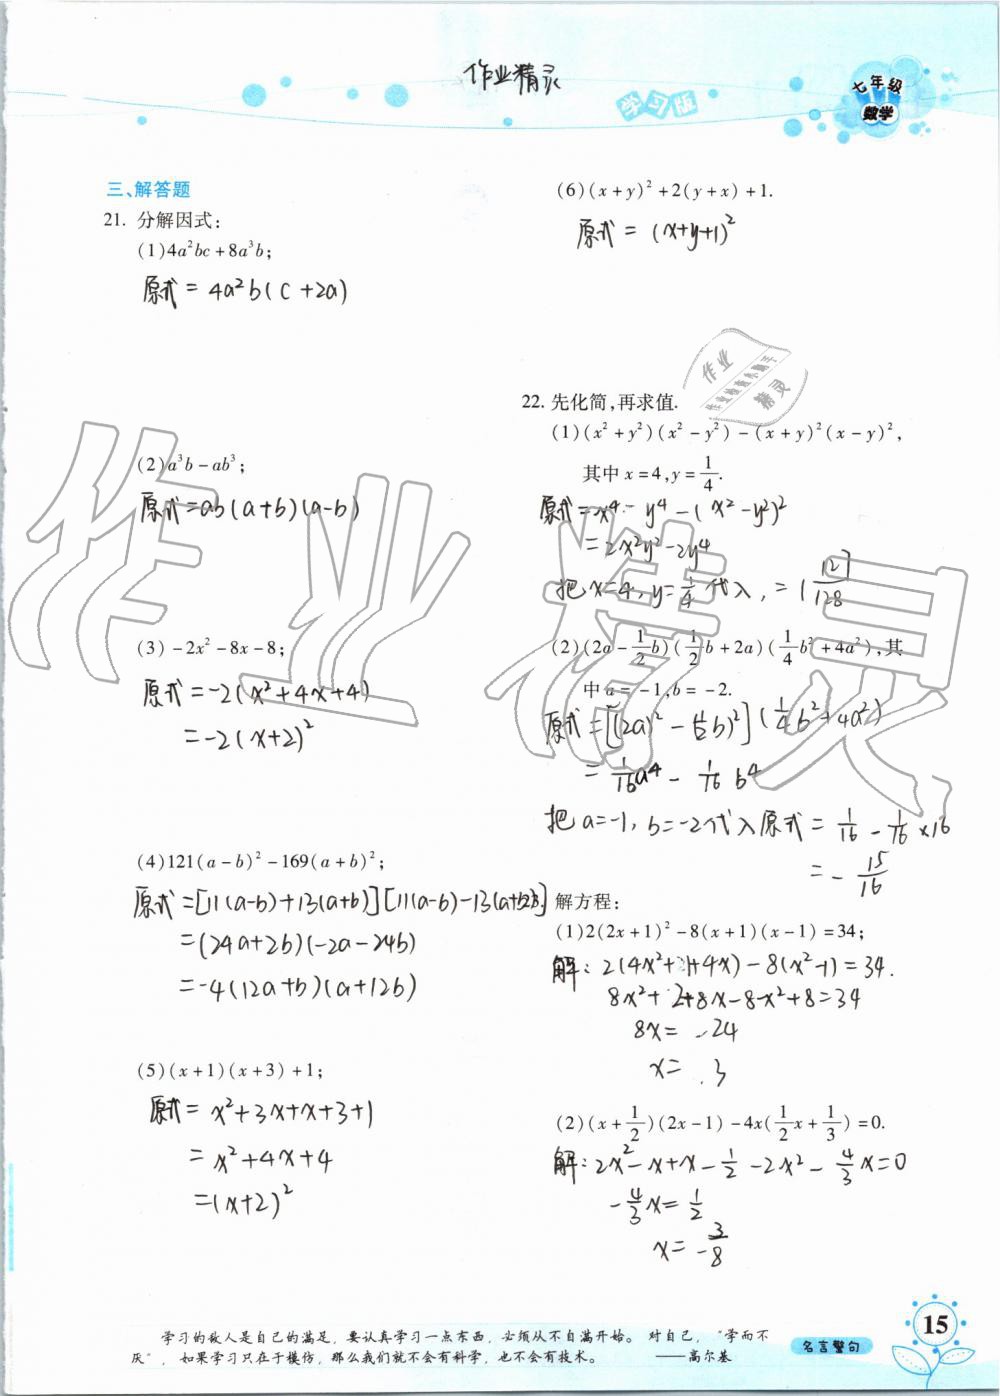 作业精灵
学习版
七年级
数学
三、解答题
21. 分解因式:
(1)4a²bc+8a³b;
原式 = 4a²b(c+2a)
(2)a³b-ab³;
原式=ab(a+b)(a-b)
(3)-2x²-8x-8;
原式=-2(x²+4x+4)
=-2(x+2)²
(4)121(a-b)²-169(a+b)²;
原式=[11(a-b)+13(a+b)][11(a-b)-13(a+b)]
=(24a+2b)(-2a-24b)
=-4(12a+b)(a+12b)
(5)(x+1)(x+3)+1;
原式= x²+3x+x+3+1
= x²+4x+4
=(x+2)²
(6)(x+y)²+2(y+x)+1.
原式 = (x+y+1)²
作业
精灵
22. 先化简,再求值.
(1)(x²+y²)(x²-y²)-(x+y)²(x-y)²,
其中x=4,y=1/4.
原式=x⁴-y⁴-(x²-y²)²
=2x²y²-2y⁴
把x=4,y=1/4代入,=1 127/128
(2)(2a-1/2b)(1/2b+2a)(1/4b²+4a²),其
中a=-1,b=-2.
原式=[(2a)²-(1/2b)²](1/4b²+4a²)
= 1/16a⁴ - 1/16b⁴
把a=-1,b=-2代入原式= 1/16 - 1/16×16
=-15/16
23. 解方程:
(1)2(2x+1)²-8(x+1)(x-1)=34;
解: 2(4x²+1+4x)-8(x²-1)=34.
8x²+2+8x-8x²+8=34
8x= 24
x= 3
(2)(x+1/2)(2x-1)-4x(1/2x+1/3)=0.
解:2x²-x+x-1/2-2x²-4/3x=0
-4/3x=1/2
x=-3/8
作业精灵
学习的敌人是自己的满足,要认真学习一点东西,必须从不自满开始。对自己,“学而不
厌”,如果学习只在于模仿,那么我们就不会有科学,也不会有技术。 ——高尔基
名言警句
15